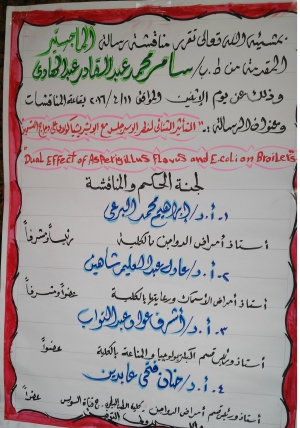 بمشيئة الله تعالى تقرر مناقشة رسالة الماجستير
المقدمة من ط.ب/ سامر محمد عبد القادر عبد الهادى
وذلك عن يوم الإثنين الموافق ٢٠١٦/٤/١١ بقاعة المناقشات
وعنوان الرسالة :- "التأثير الثنائى لفطر الاسبرجلس مع الايشيريشيا كولاى على دجاج التسمين
Dual Effect of Aspergillus Flavus and E.coli on Broilers
لجنة الحكم والمناقشة
١. أ.د/ إبراهيم محمد البرعى
أستاذ أمراض الدواجن بالكلية رئيساً ومشرفاً
٢. أ.د/ عادل عبد العليم شاهين
أستاذ أمراض الأسماك ورعايتها بالكلية عضواً ومشرفاً
٣. أ.د/ أشرف عواد عبد التواب
أستاذ ورئيس قسم البكتريولوجيا والمناعة بالكلية عضواً
٤. أ.د/ حنان فتحى عابدين
أستاذ ورئيس قسم أمراض الدواجن - كلية الطب البيطرى. ج قناة السويس عضواً